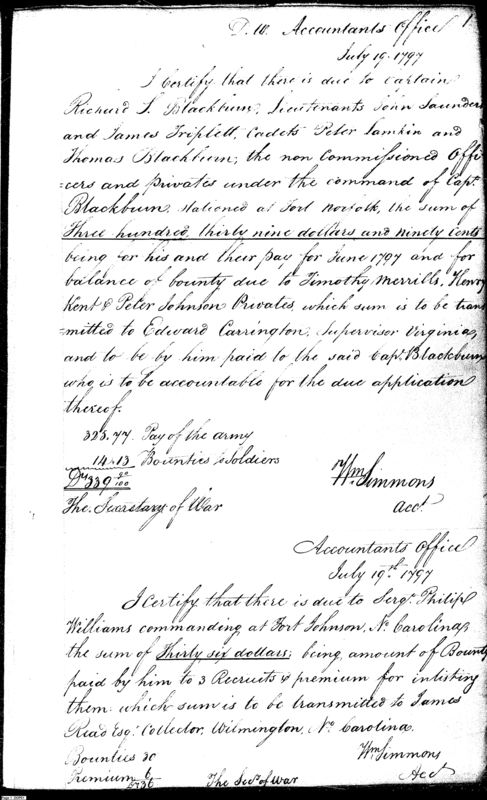 D. W. Accountants Office
1
July 19. 1797
I Certify that there is due to Captain
Richard S. Blackburn, Lieutenants John Saunders
and James Triplett, Cadets Peter Lamkin and
Thomas Blackburn; the non Commissioned Offi
=cers and privates under the command of Capt.
Blackburn, stationed at Fort Norfolk, the sum of
Three hundred, thirty nine dollars and ninety Cents
being for his and their pay for June 1797 and for
balance of bounty due to Timothy Merrills, Henry
Kent & Peter Johnson Privates, which sum is to be trans
=mitted to Edward Carrington, Supervisor Virginia,
and to be by him paid to the said Capt. Blackburn
who is to be accountable for the due application
thereof.
325.77 Pay of the army
14.13 Bounties to Soldiers
Ds 339 90/100
Wm. Simmons
The Secretary of War
Acct.
Accountants Office
July 19th. 1797
I Certify that there is due to Sergt. Philip
Williams commanding at Fort Johnson, No. Carolina,
the sum of Thirty six dollars; being amount of Bounty
paid by him to 3 Recruits & premium for inlisting
them which sum is to be transmitted to James
Read Esqr. Collector, Wilmington, No. Carolina.
Bounties 30
Wm Simmons
Premium 6
Acct
Ds 36
The Secy. of War